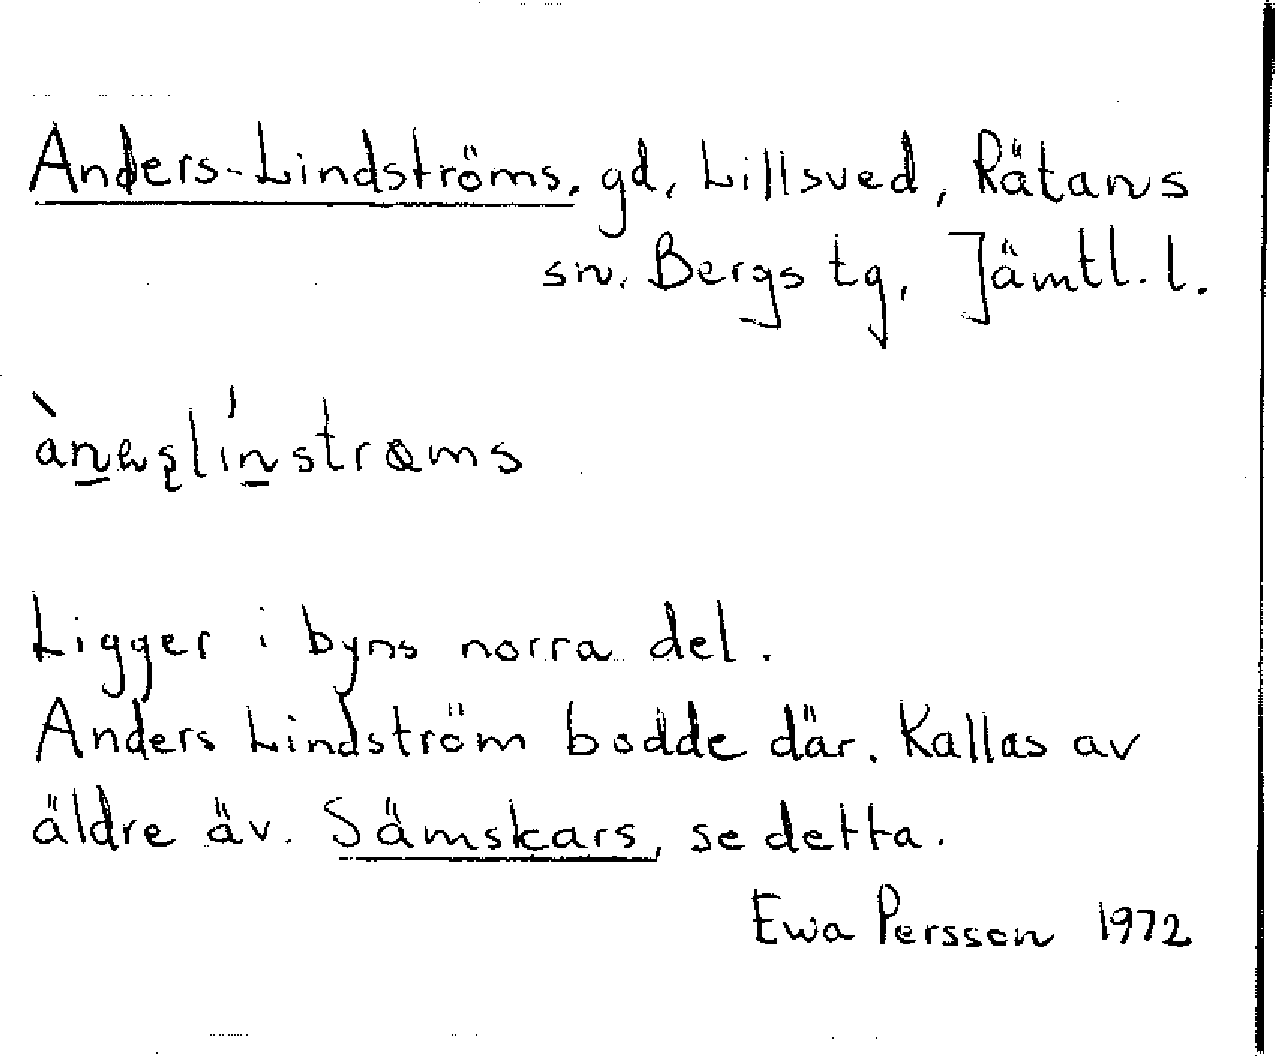 Anders-Lindströms, gd, Lillsved, Rätans
sn. Bergs tg, Jämtl. l.
Ligger i byns norra del.
Anders Lindström bodde där. Kallas av
äldre äv. Sämskars, se detta.
Ewa Persson 1972